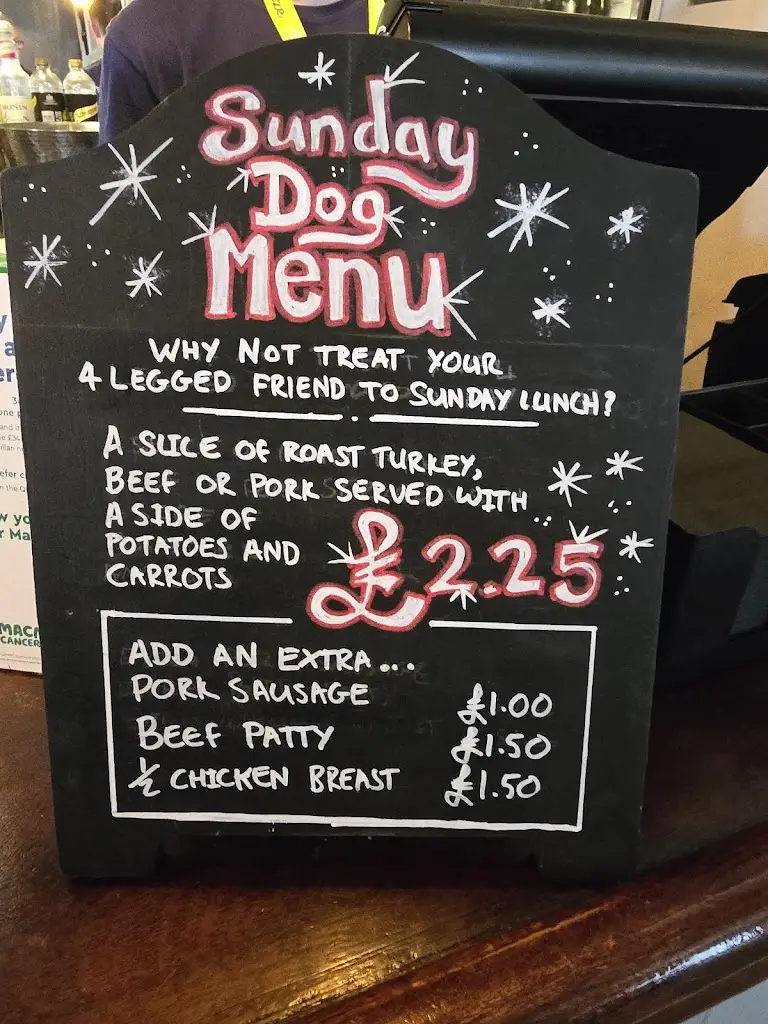 Sunday
Dog
Menu
WHY NOT TREAT YOUR
4 LEGGED FRIEND TO SUNDAY LUNCH?
A SLICE OF ROAST TURKEY,
BEEF OR PORK SERVED WITH
A SIDE OF
POTATOES AND
CARROTS
£2.25
ADD AN EXTRA...
PORK SAUSAGE £1.00
BEEF PATTY £1.50
½ CHICKEN BREAST £1.50